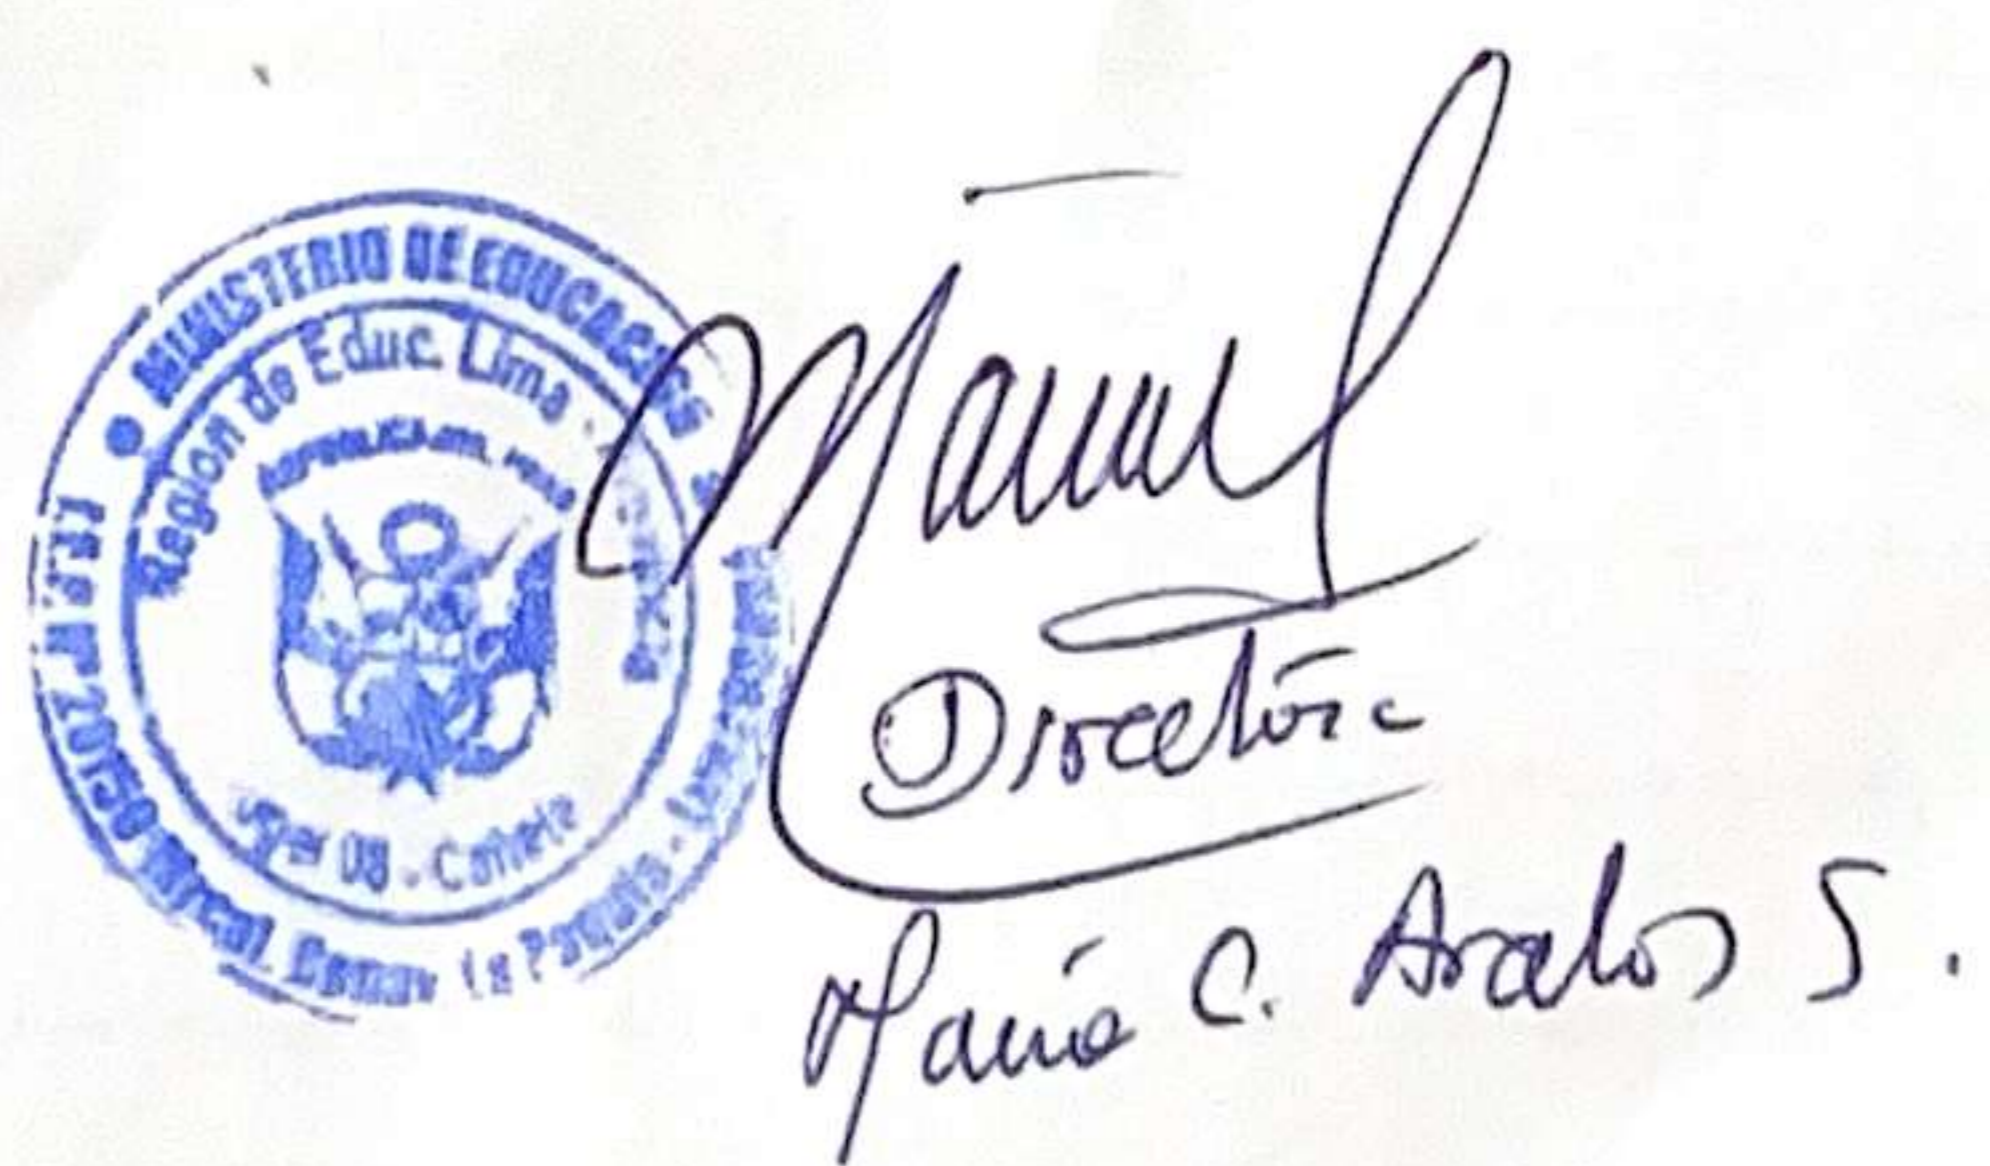 MINISTERIO DE EDUCACION
Region de Educ. Lima
REPUBLICA DEL PERU
Uger 08 - Cañete
I.E.P. Nº 20150 Mrcal. Benav
Directora
María C. Avalos S.